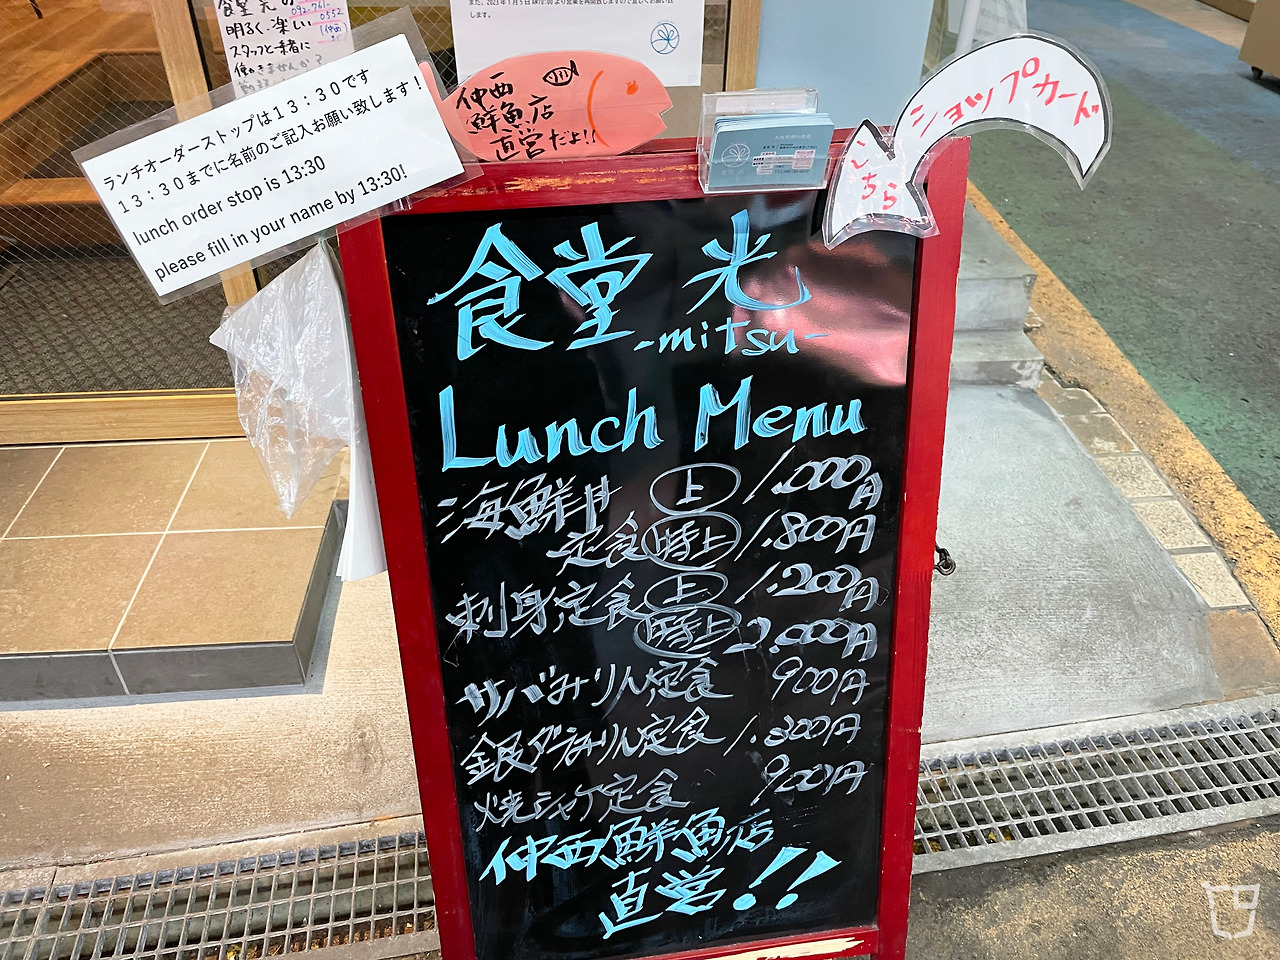 食堂光の
092-761-
0552
明るく、楽しい
スタッフと一緒に
働きませんか?
(仲西
まで
また、2023年1月5日AM10:00より営業を再開致しますので宜しくお願い致
します。
ランチオーダーストップは13:30です
13:30までに名前のご記入お願い致します!
lunch order stop is 13:30
please fill in your name by 13:30!
仲西
鮮魚店
直営だよ!!
ショップカード
こちら
食堂 光
-mitsu-
Lunch Menu
海鮮丼 上 1.000円
定食 特上 1.800円
刺身定食 上 1.200円
特上 2.000円
サバみりん定食 900円
銀ダラみりん定食 1.300円
焼シャケ定食 900円
仲西鮮魚店
直営!!